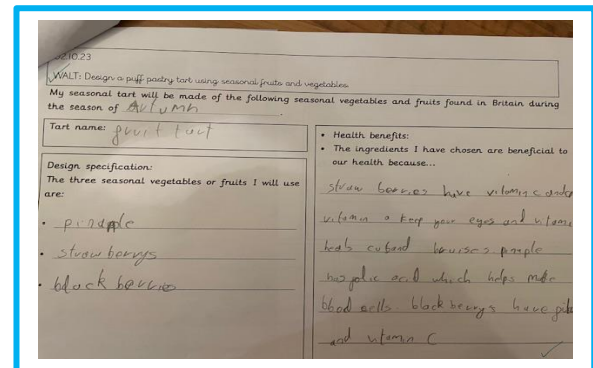 02.10.23
WALT: Design a puff pastry tart using seasonal fruits and vegetables.
My seasonal tart will be made of the following seasonal vegetables and fruits found in Britain during
the season of Autumn
Tart name: fruit tart
Design specification:
The three seasonal vegetables or fruits I will use
are:
• pinapple
• strawberrys
• black berries
• Health benefits:
• The ingredients I have chosen are beneficial to
our health because...
straw berries have vitamin c and
vitamin a keep your eyes and vitami
heals cut and bruises
has folic acid which helps make
blood cells. black berrys have
and vitamin C